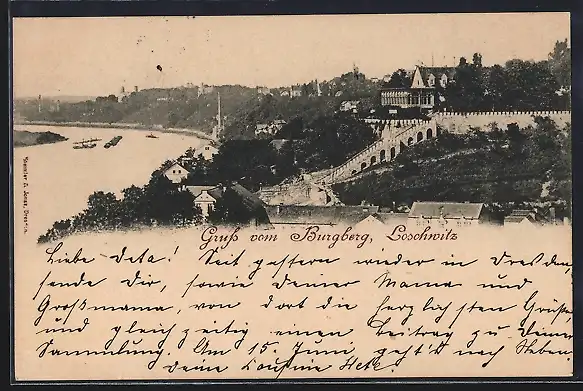 Stengel & Co.
Gruß vom Burgberg, Loschwitz
Liebe Deta! Seit gestern wieder in Dresden,
sende Dir, sowie Deiner Mama und
Großmama, von dort die herzlichsten Grüße,
und gleichzeitig einen Beitrag zu Deiner
Sammlung. Am 15. Juni geht's nach
Deine Cousine